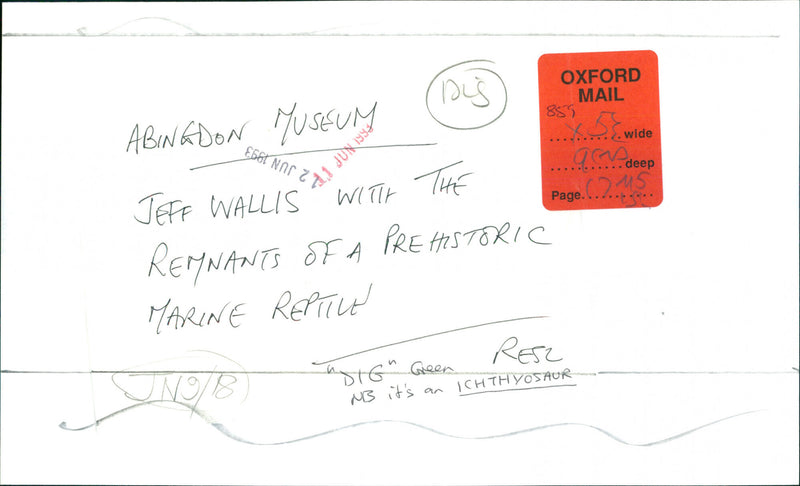 OXFORD
MAIL
855
x 5¾ wide
deep
Page 17
ABINGDON MUSEUM
12 JUN 1993
JEFF WALLIS WITH THE
REMNANTS OF A PREHISTORIC
MARINE REPTILE
"DIG" Green
NB it's an ICHTHYOSAUR
JN9/8